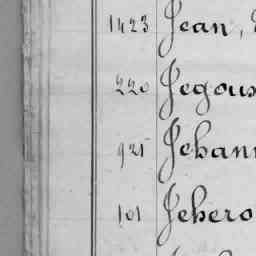 1423 Jean,
220 Jegoux
921 Jehann
101 Jehero